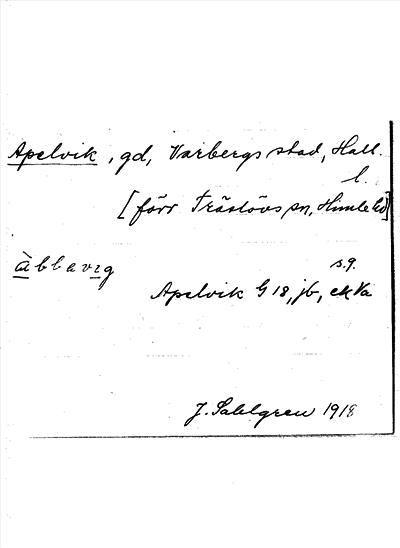 Apelvik, gd, Varbergs stad, Hall.
l.
[förr Träslövs sn, Himle hd]
àbbavıg
s.g.
Apelvik G18, jb, ekKa
J. Sahlgren 1918